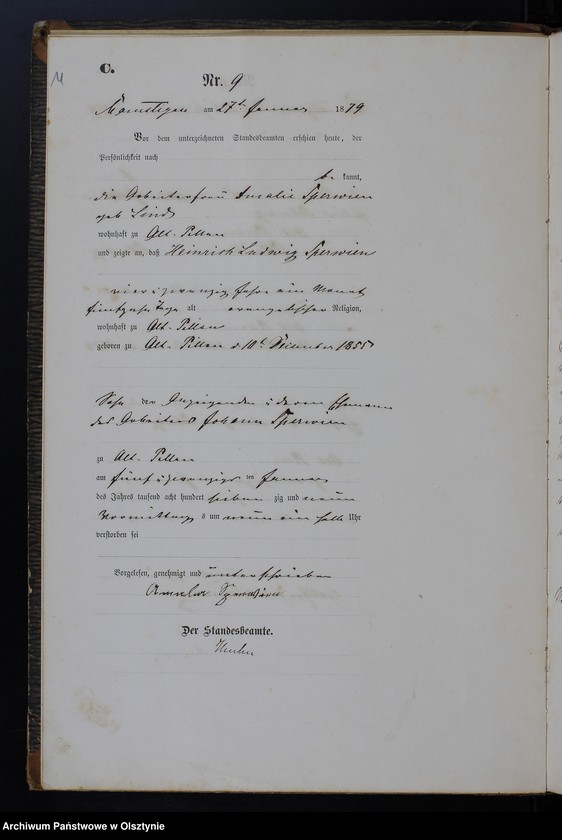 C.
Nr. 9
am 27t Januar 1879
Vor dem unterzeichneten Standesbeamten erschien heute, der
Persönlichkeit nach
be kannt,
die Arbeiterfrau Amalie Sperwien
geb Lind
wohnhaft zu Alt-Pillau
und zeigte an, daß Heinrich Ludwig Sperwien
vierundzwanzig Jahr ein Monat
fünfzehn Tage alt evangelischer Religion,
wohnhaft zu Alt-Pillau
geboren zu Alt-Pillau d 10t Dezember 1855
Sohn der Anzeigenden u deren Ehemann
des Arbeiters Johann Sperwien
zu Alt-Pillau
am fünf u zwanzigs ten Januar
des Jahres tausend acht hundert sieben zig und neun
Vormittag s um neun ein halb Uhr
verstorben sei
Vorgelesen, genehmigt und unterschrieben
Sperwien
Der Standesbeamte.
Archiwum Państwowe w Olsztynie